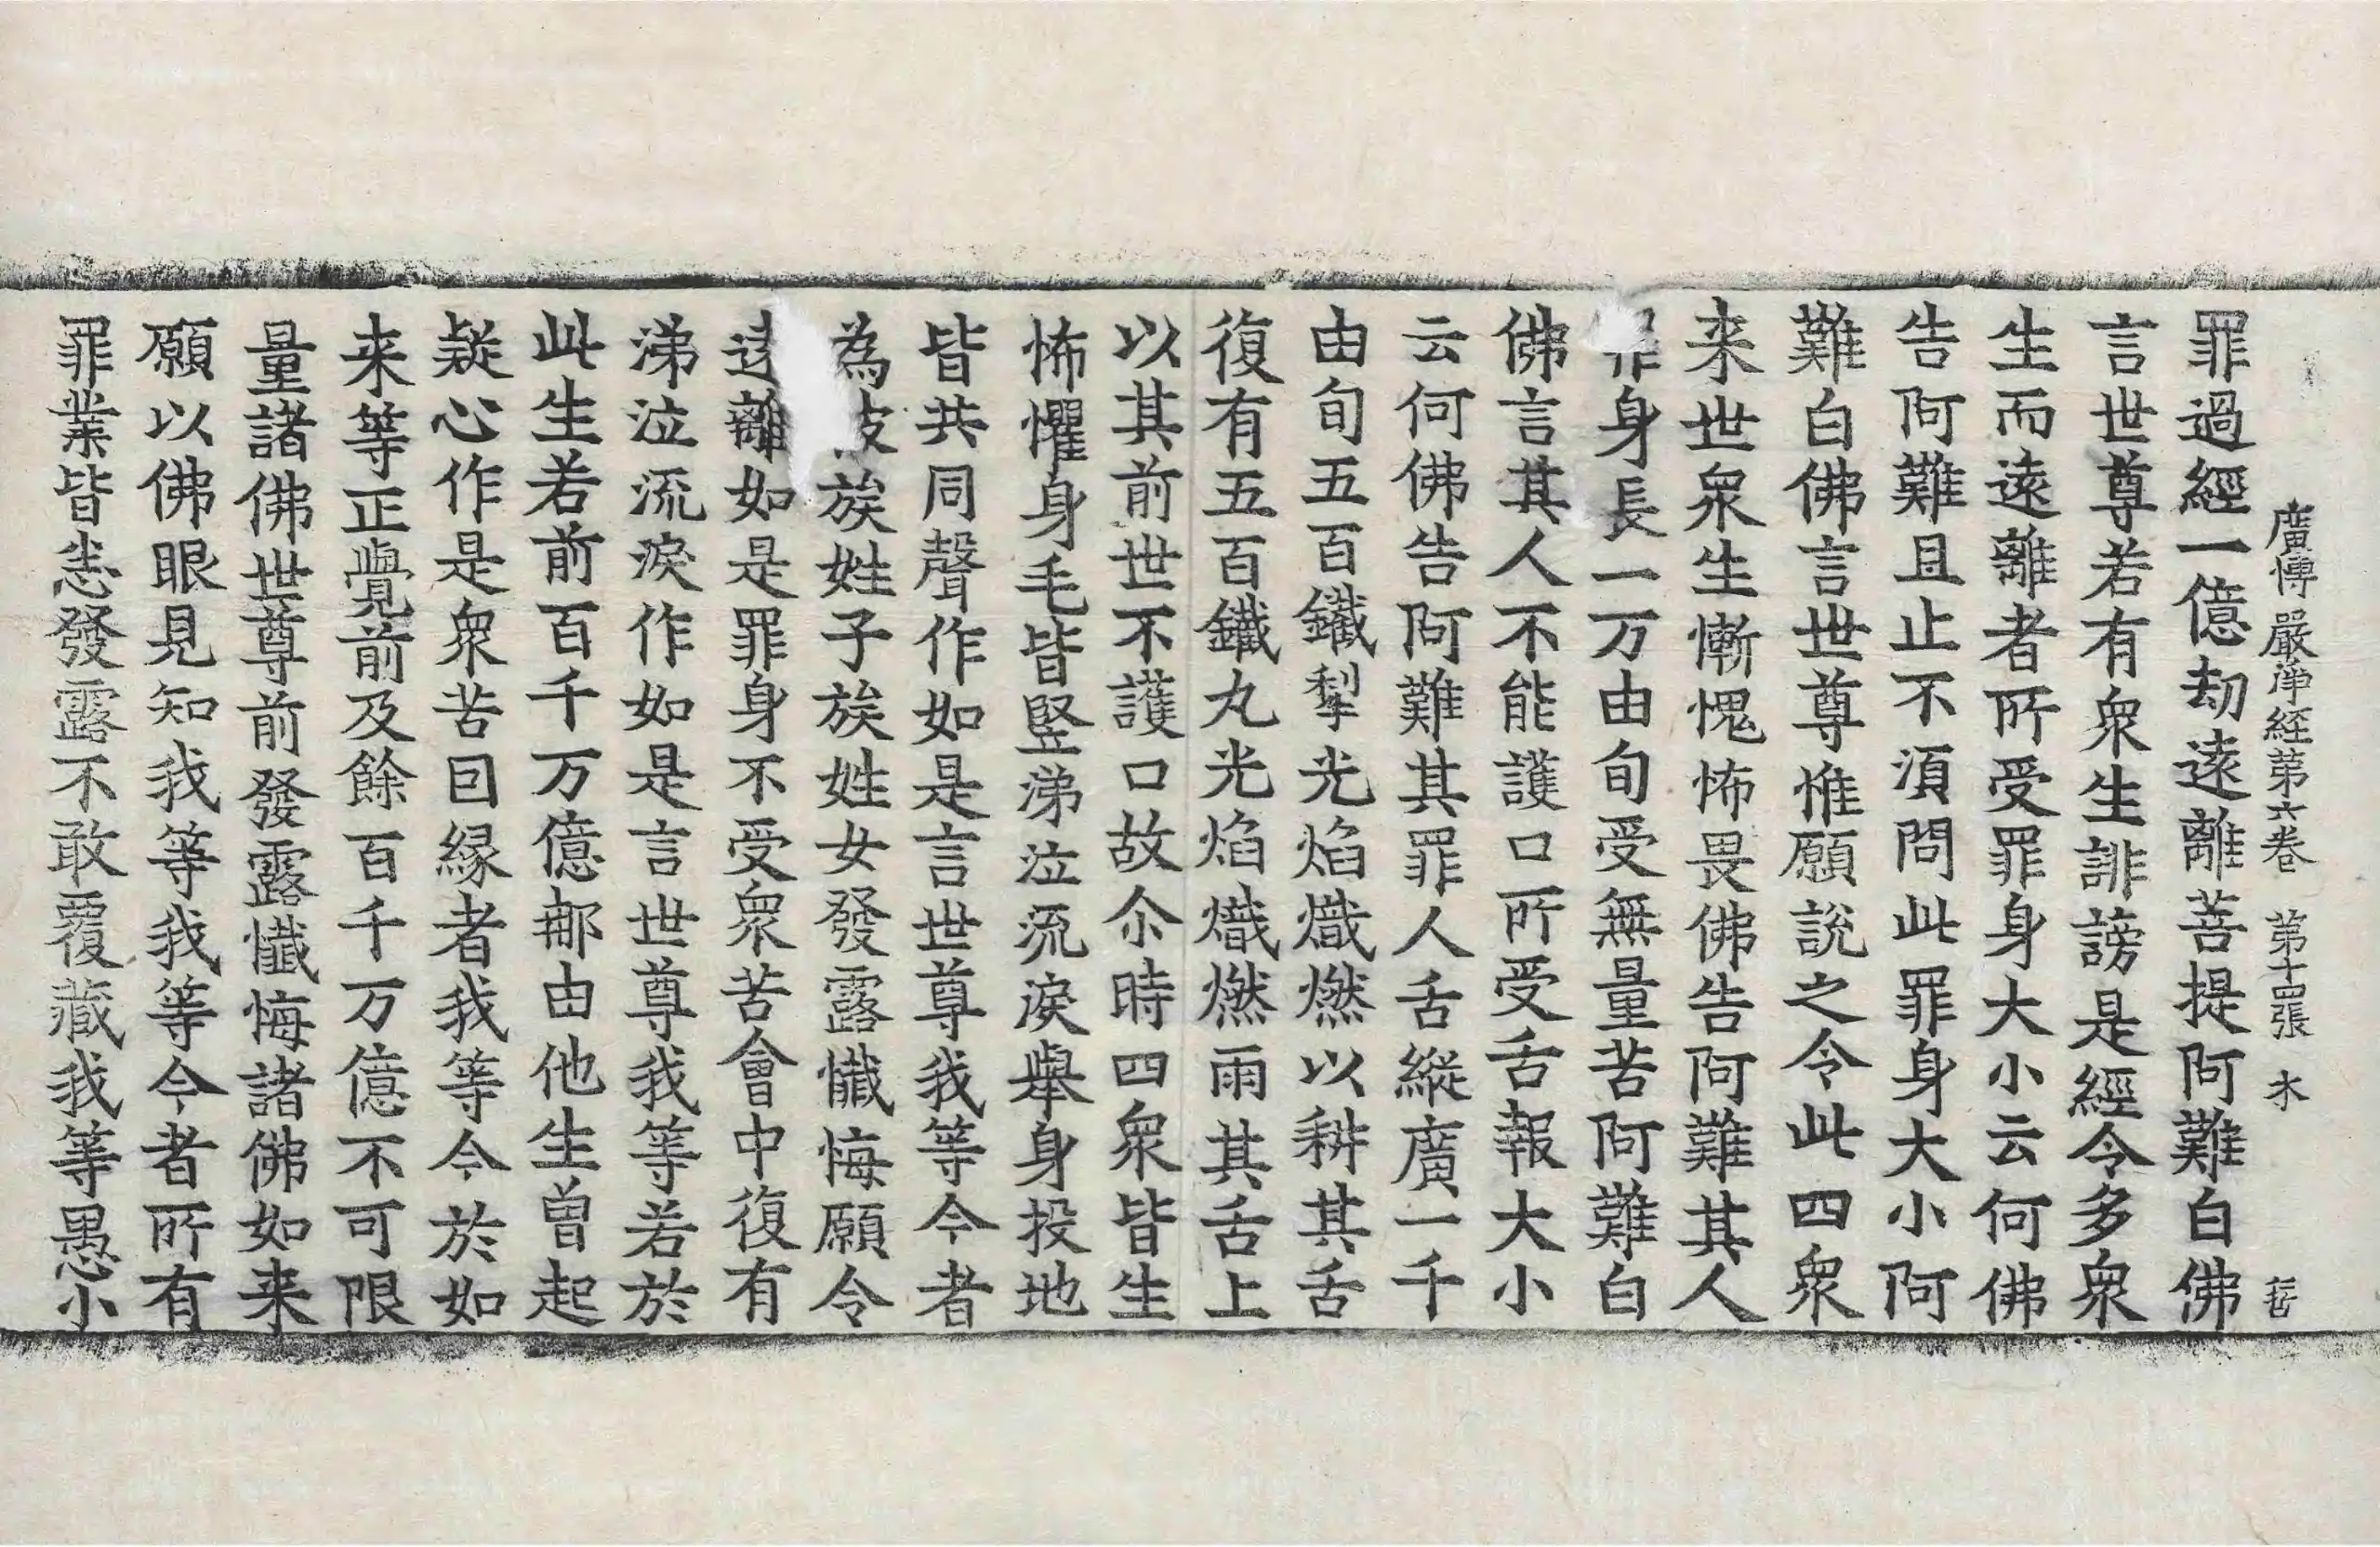 廣博嚴淨経第六卷 第十四張 木
罪過經一億劫遠離菩提阿難白佛
言世尊若有衆生誹謗是經令多衆
生而遠離者所受罪身大小云何佛
告阿難且止不須問此罪身大小阿
難白佛言世尊惟願說之令此四衆
来世衆生慚愧怖畏佛告阿難其人
罪身長一万由旬受無量苦阿難白
佛言其人不能護口所受舌報大小
云何佛告阿難其罪人舌縱廣一千
由旬五百鐵犁光焰熾燃以耕其舌
復有五百鐵丸光焰熾燃雨其舌上
以其前世不護口故尒時四衆皆生
怖懼身毛皆竪涕泣流淚舉身投地
皆共同聲作如是言世尊我等今者
為彼族姓子族姓女發露懺悔願令
遠離如是罪身不受衆苦會中復有
涕泣流淚作如是言世尊我等若於
此生若前百千万億𨚗由他生曾起
疑心作是衆苦囙縁者我等今於如
来等正覺前及餘百千万億不可限
量諸佛世尊前發露懺悔諸佛如来
願以佛眼見知我等我等今者所有
罪業皆悉發露不敢覆藏我等愚小